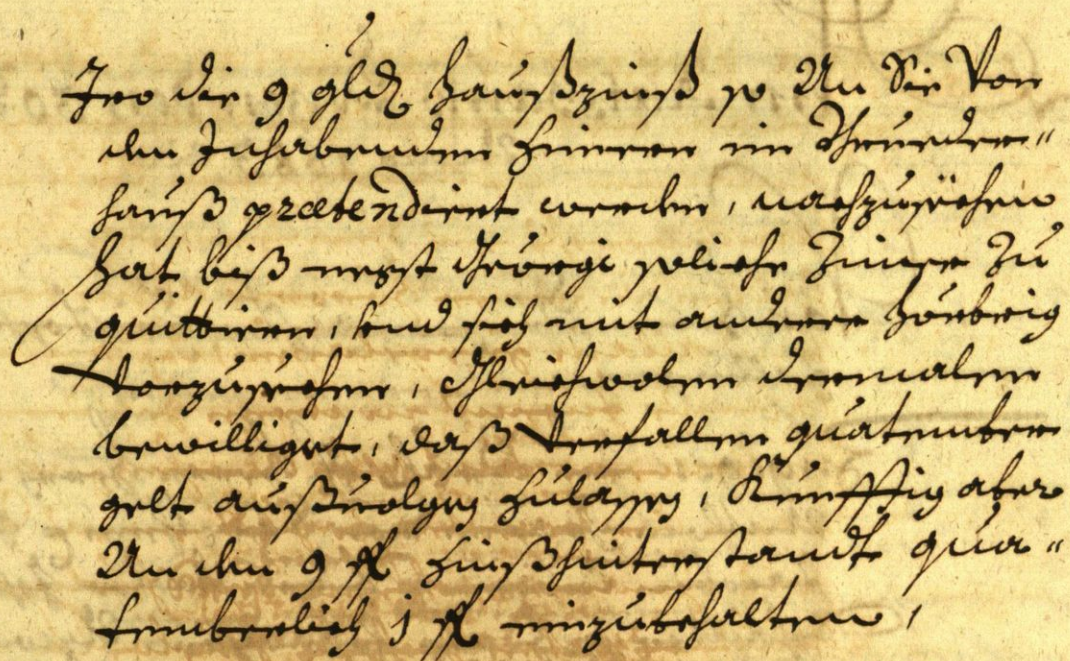 Iro die 9 gld. Haußzinß so An Sie Von
den Inhabenden Zimern im
hauß prætendiert werden, nachzusëhen
hat biß negst Geörgi solche Zinse Zu
quittieren, vnd sich mit andere
Vorzusehen, Gleichwolen dermalen
bewilliget, daß Verfallen quatember
gelt außuolgen Zulassen, Künfftig aber
An den 9 fl Zinßhinterstandt qua-
temberlich 1 fl einzubehalten,